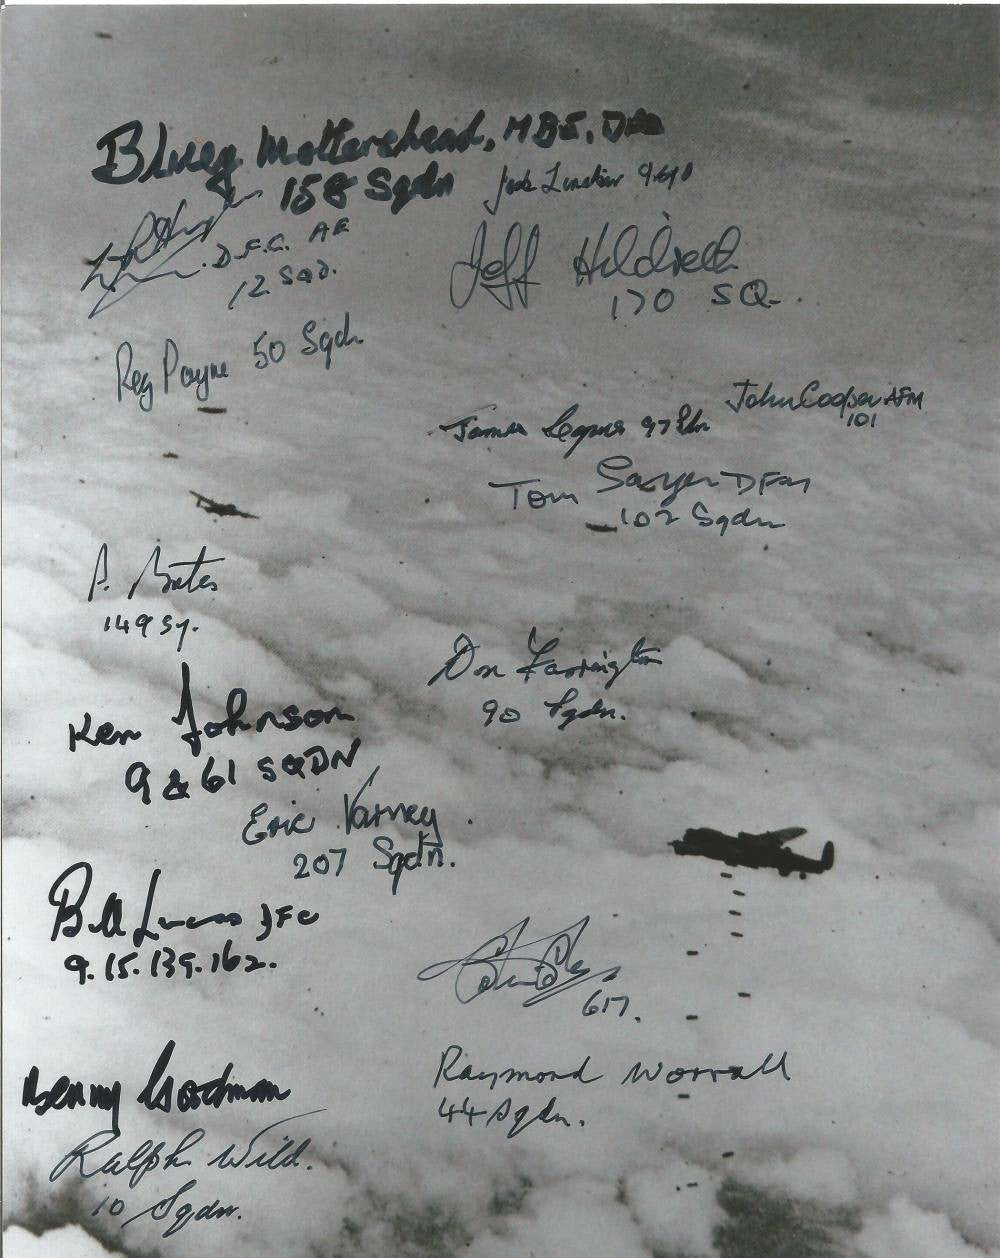 Bluey Mottershead, MBE, DFC
158 Sqdn
Jack Linaker 9.
D.F.C. AE
12 SQD.
Jeff Hildreth
170 SQ.
Reg Payne 50 Sqdn.
John Cooper AFM
101
James 97 Sqdn
Tom Sayer DFM
102 Sqdn
Bates
149 Sq.
Don Farrington
90 Sqdn.
Ken Johnson
9 & 61 SQDN
Eric Varney
207 Sqdn.
Bill Lucas DFC
9.15.139.162.
617.
Raymond Worrall
44 Sqdn.
Benny Goodman
Ralph Wild.
10 Sqdn.